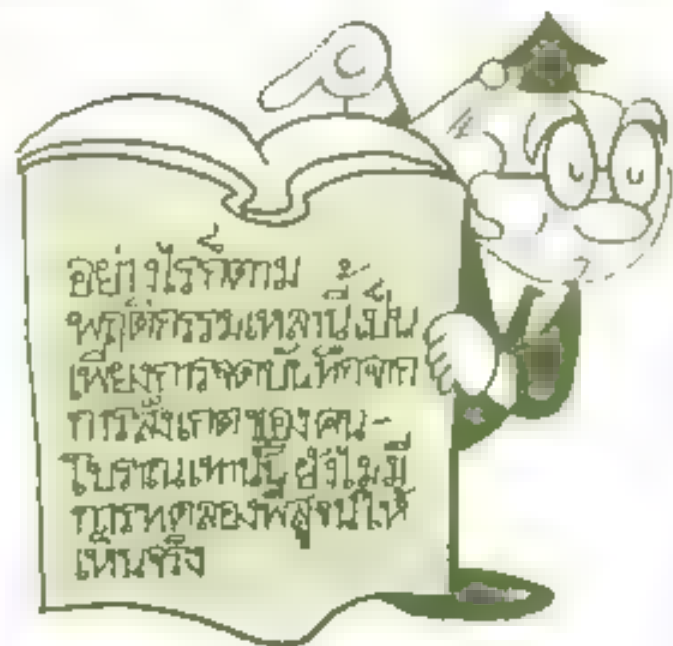 อย่างไรก็ตาม
พฤติกรรมเหล่านี้เป็น
เพียงการจดบันทึกจาก
การสังเกตของคน-
โบราณเท่านั้น ยังไม่มี
การทดลองพิสูจน์ให้
เห็นจริง